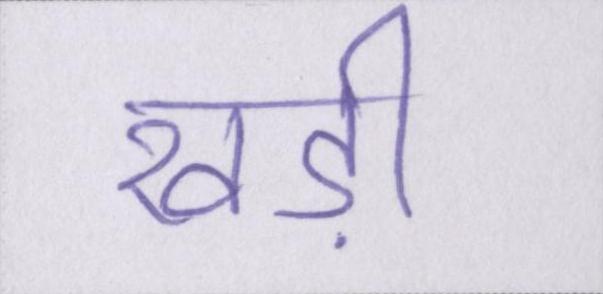 खड़ी